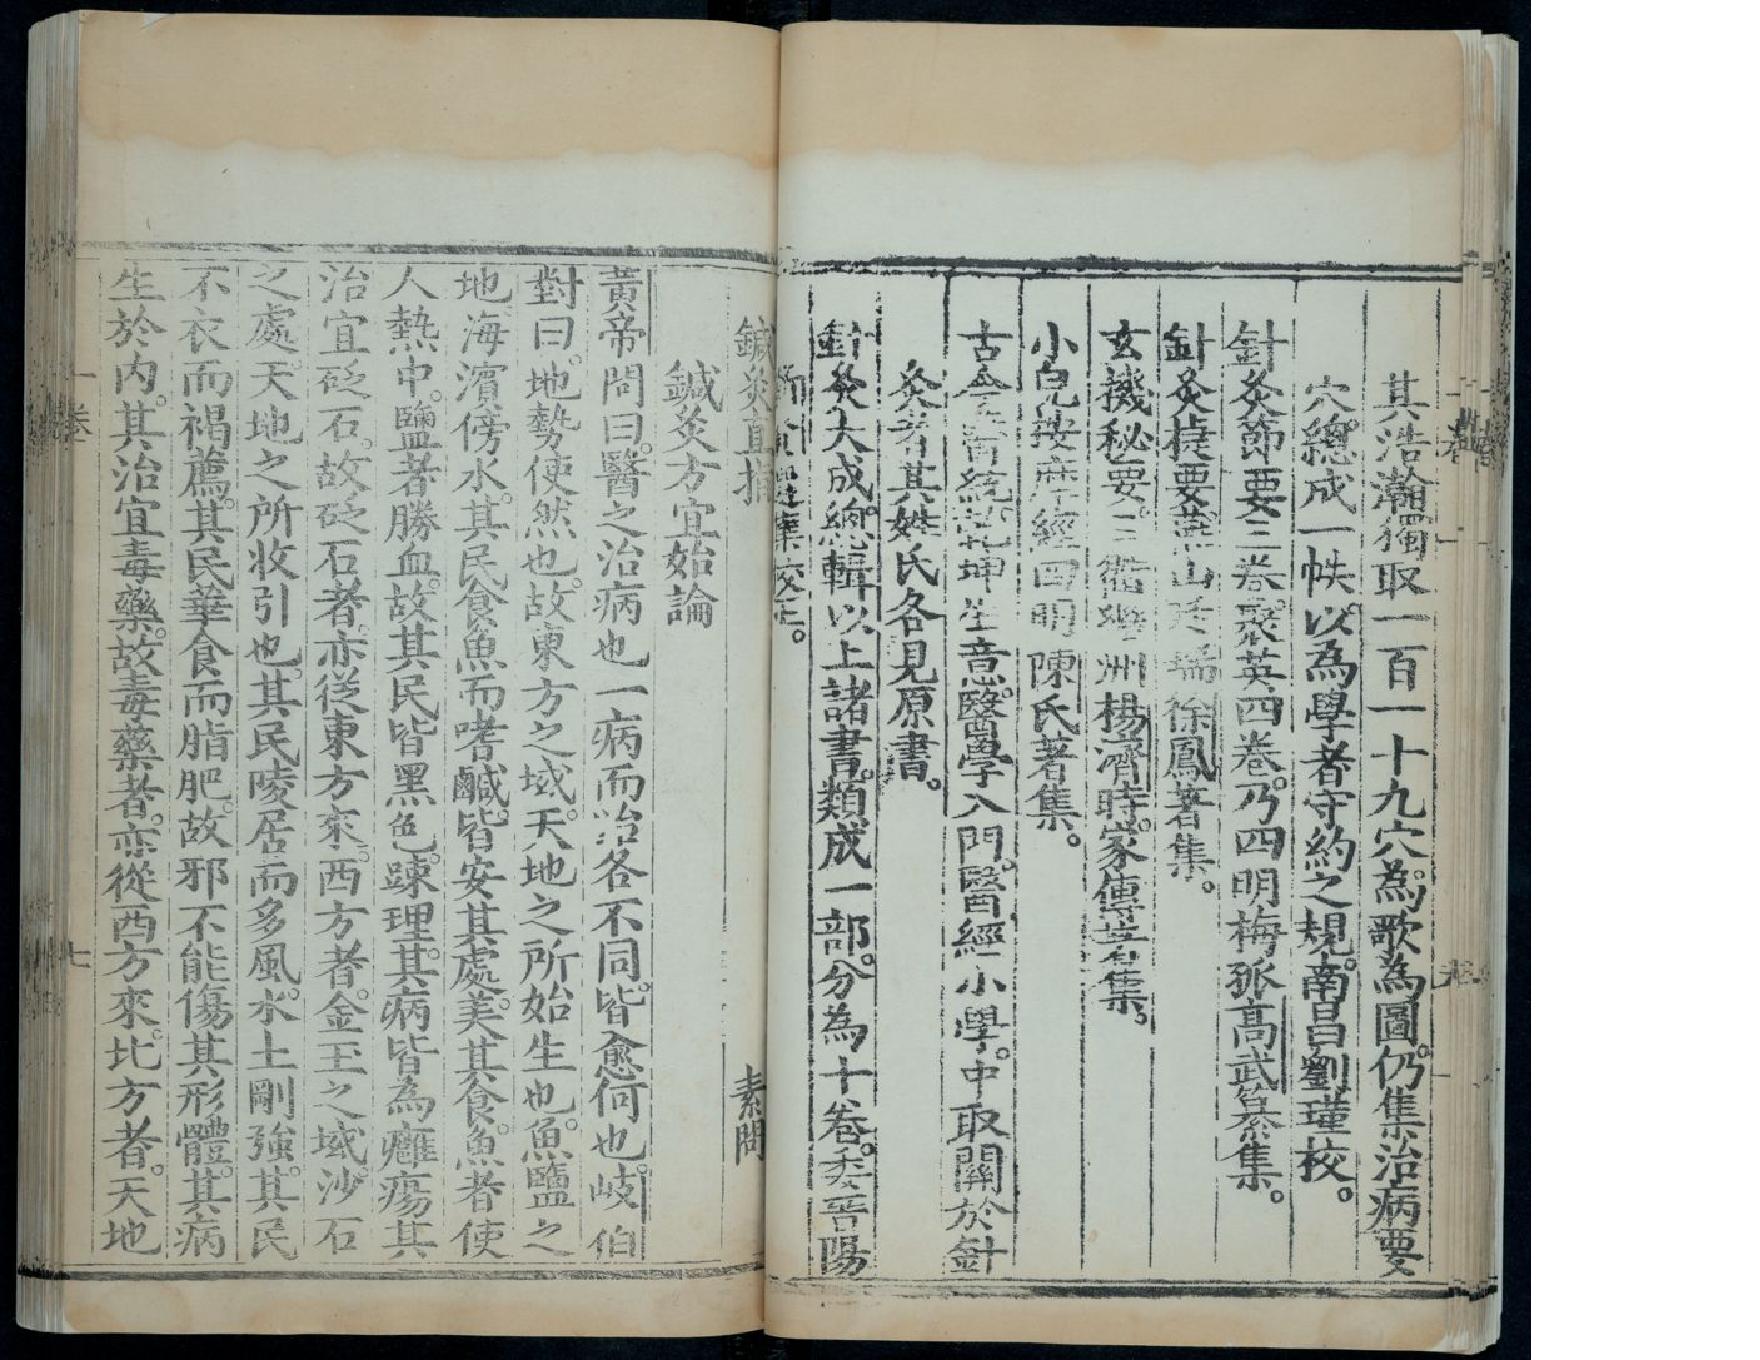 其浩瀚獨取一百一十九穴為歌為圖。仍集治病要
穴。總成一帙。以為學者守約之規。南昌劉瑾校。
針灸節要三卷。聚英四卷。乃四明梅孤高武纂集。
針灸捷要燕山廷瑞徐鳳著集。
玄機秘要。三衢 洲楊濟時。家傳著集。
小兒按摩經四明陳氏著集。
古今醫統。乾坤生意。醫學入門。醫經小學。中取關於針
灸者其姓氏各見原書。
針灸大成。總輯以上諸書。類成一部。分為十卷。委晉陽
選集校正。
鍼灸直指 素問
鍼灸方宜始論
黃帝問曰。醫之治病也一病而治各不同。皆愈何也。岐伯
對曰。地勢使然也。故東方之域。天地之所始生也。魚鹽之
地。海濱傍水。其民食魚而嗜鹹。皆安其處。美其食。魚者使
人熱中。鹽者勝血。故其民皆黑色踈理。其病皆為癰瘍其
治宜砭石。故砭石者。亦從東方來。西方者。金玉之域。沙石
之處。天地之所收引也。其民陵居而多風。水土剛強。其民
不衣而褐薦。其民華食而脂肥。故邪不能傷其形體。其病
生於內。其治宜毒藥。故毒藥者。亦從西方來。北方者。天地
卷一
七